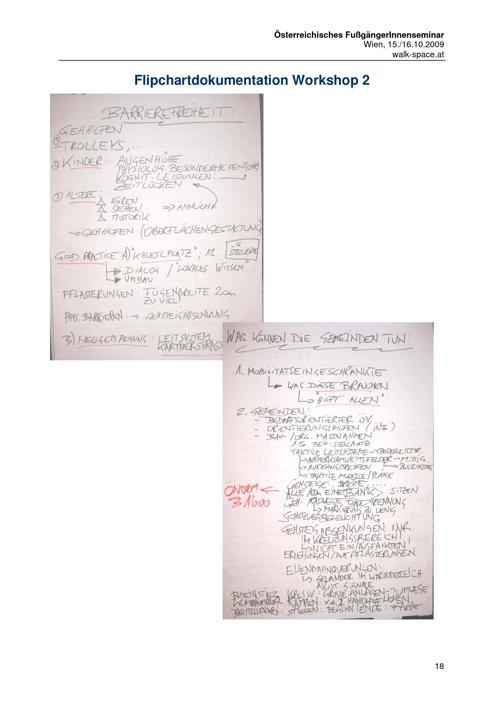 Österreichisches FußgängerInnenseminar
Wien, 15./16.10.2009
walk-space.at
Flipchartdokumentation Workshop 2
BARRIEREFREIHEIT:
① GEHHILFEN
TROLLEYS, ...
② KINDER: AUGENHÖHE
PHYSIOLOG. BESONDERHEITEN
KOGNIT. LEISTUNGEN:
ZEITLÜCKEN
③ ÄLTERE: HÖREN
SEHEN ⇒ ÄHNLICH
MOTORIK
→ GEHHILFEN (OBERFLÄCHENGESTALTUNG)
GOOD PRACTICE A) "KHLESLPLATZ", 12.
DIALOG / "LOKALES WISSEN"
UMBAU
PFLASTERUNGEN: FUGENBREITE 2cm
ZU VIEL!
PHYS. BARRIEREN: → GEHSTEIGABSENKUNG
B) NEUGESTALTUNG: LEITSYSTEM
KÄRTNERSTRASSE
WAS KÖNNEN DIE GEMEINDEN TUN:
1. MOBILITÄTSEINGESCHRÄNKTE
WAS DIESE BRAUCHEN
"HILFT ALLEN"
2. GEMEINDEN:
- BEDARFSORIENTIERTER ÖV
- ORIENTIERUNGSHILFEN (INFO)
- BAU-/ORG. MASSNAHMEN
BEH. STELLPLATZ
TAKTILE LEITSYSTEME
AUFMERKSAMKEITSFELDER → MITTIG
AUFFANGSTREIFEN
TAKTILE MODELLE/PLÄNE
GEHSTEIGE: BREITE, ...
ÖNORM
B 1600
ALLE 100m EINE "BANK" SITZEN
MARKIERUNG ZU WENIG
SCHUTZWEGBELEUCHTUNG
GEHSTEIGABSENKUNGEN NUR
IM KREUZUNGSBEREICH!
NICHT EIN/AUSFAHRTEN!
ERHEBUNGEN/AUFPFLASTERUNGEN
EISENBAHNQUERUNGEN:
GELÄNDER IM WARTEBEREICH
AKUST. SIGNALE
KREISV.: GROSSE ANLAGEN - UMWEGE
RAMPEN: v.a. 2 HANDLÄUFE
STIEGEN: BEGINN/ENDE:
18